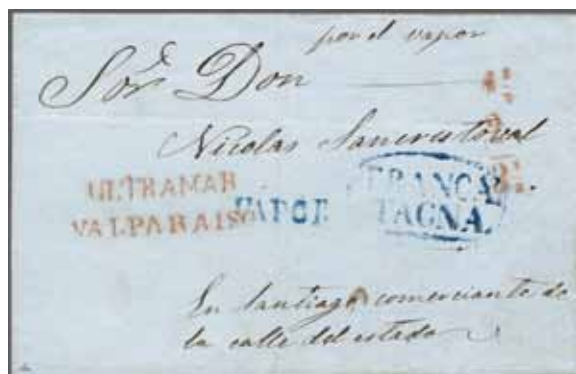 por el vapor
Sor. Don
Nicolas Sancristoval
ULTRAMAR
VALPARAISO
VAPOR
FRANCA
TACNA.
En Santiago, comerciante de
la calle del estado